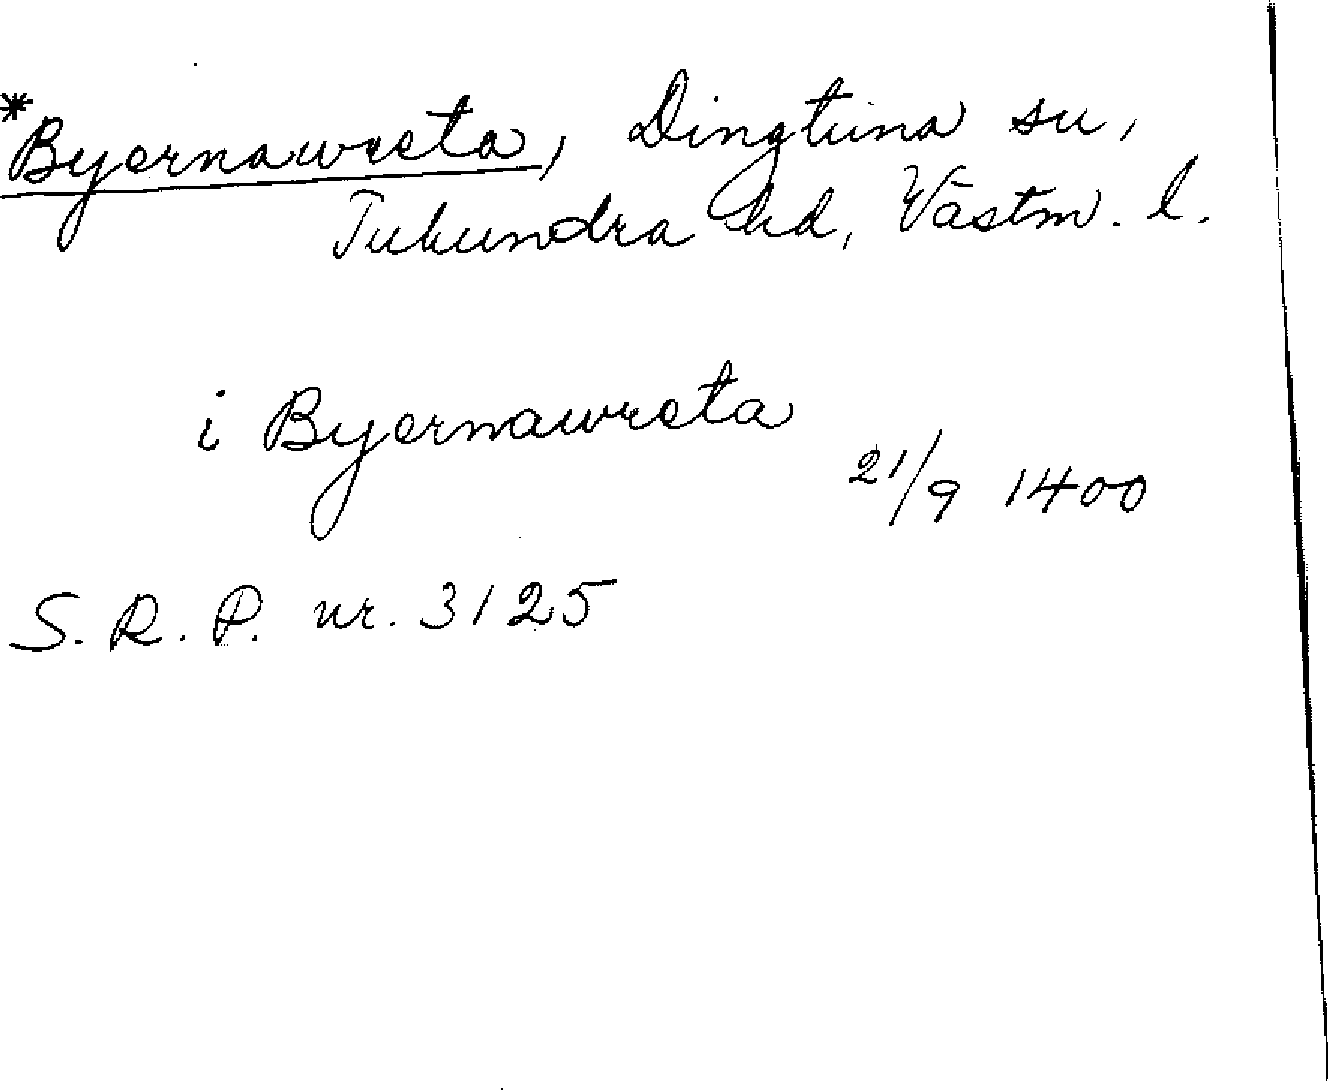 *Byernawreta, Dingtuna sn,
Tuhundra hd, Västm. l.
i Byernawreta
21/9 1400
S. R. P. nr. 3125